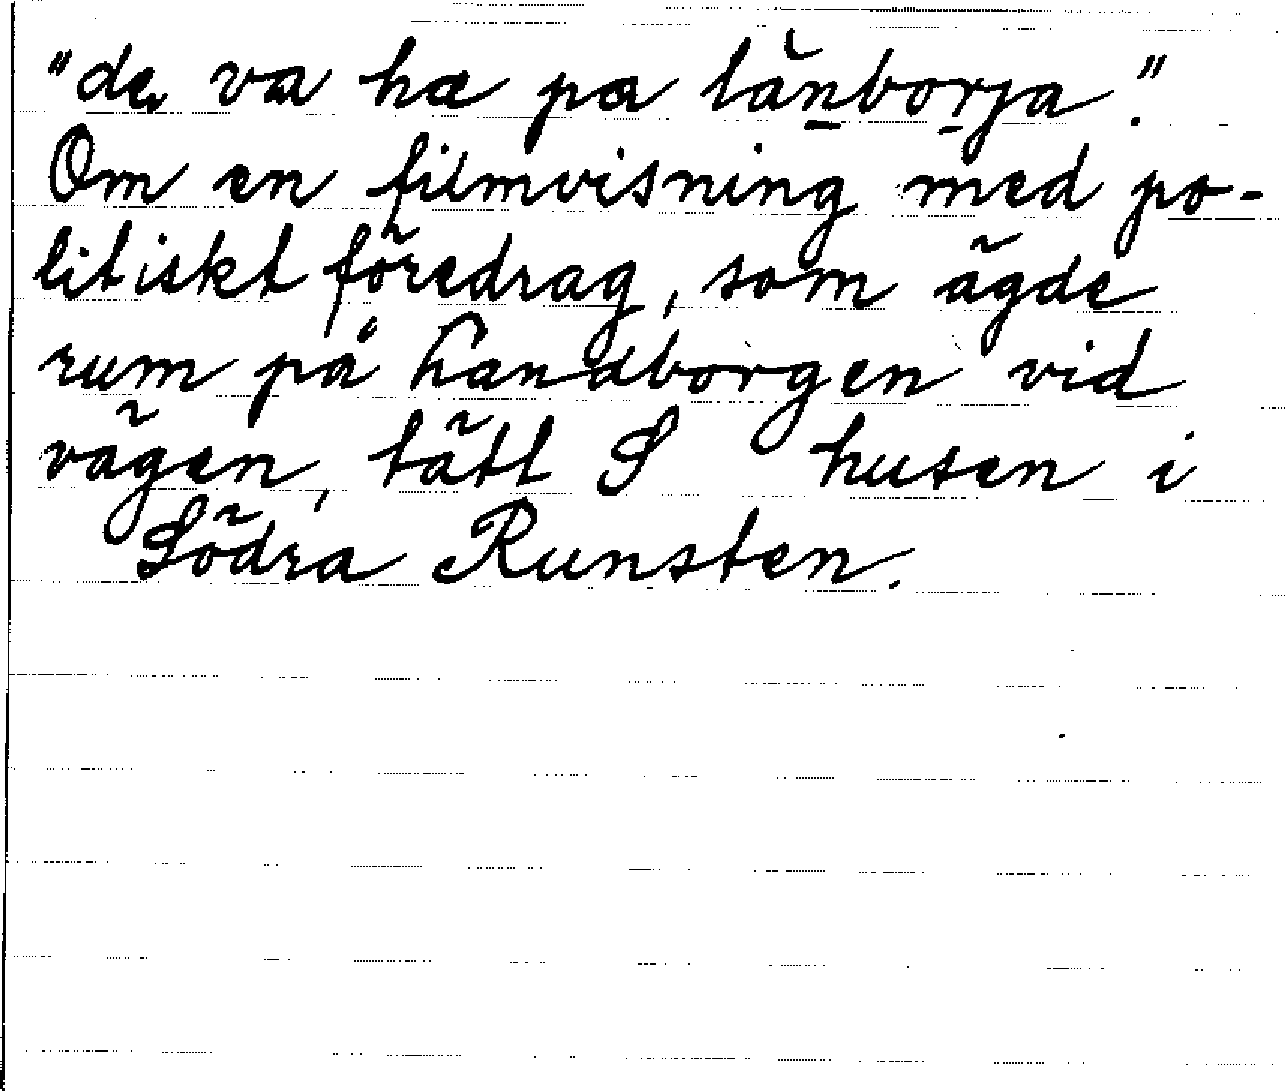 "de va ha på länborja."
Om en filmvisning med po-
litiskt föredrag, som ägde
rum på landborgen vid
vägen, tätt S husen i
Södra Runsten.